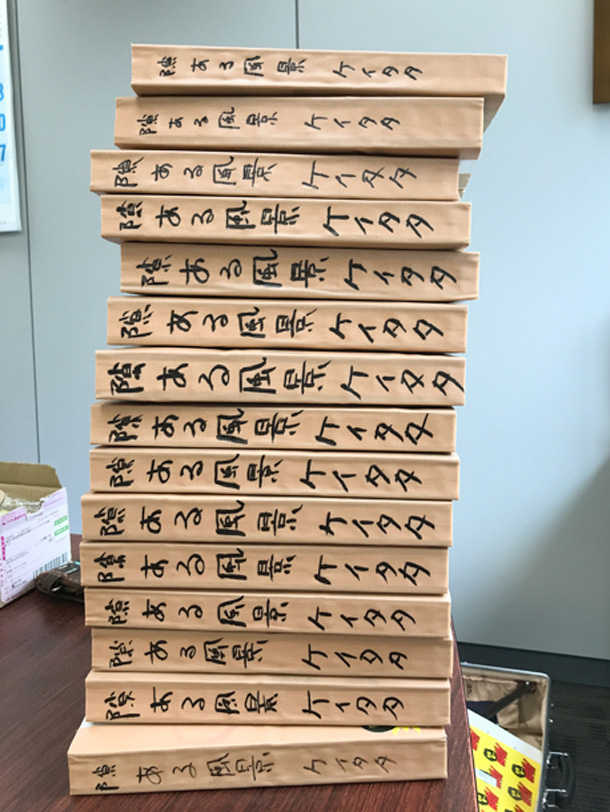 隙ある風景 ケイタタ
隙ある風景 ケイタタ
隙ある風景 ケイタタ
隙ある風景 ケイタタ
隙ある風景 ケイタタ
隙ある風景 ケイタタ
隙ある風景 ケイタタ
隙ある風景 ケイタタ
隙ある風景 ケイタタ
隙ある風景 ケイタタ
隙ある風景 ケイタタ
隙ある風景 ケイタタ
隙ある風景 ケイタタ
隙ある風景 ケイタタ
隙ある風景 ケイタタ